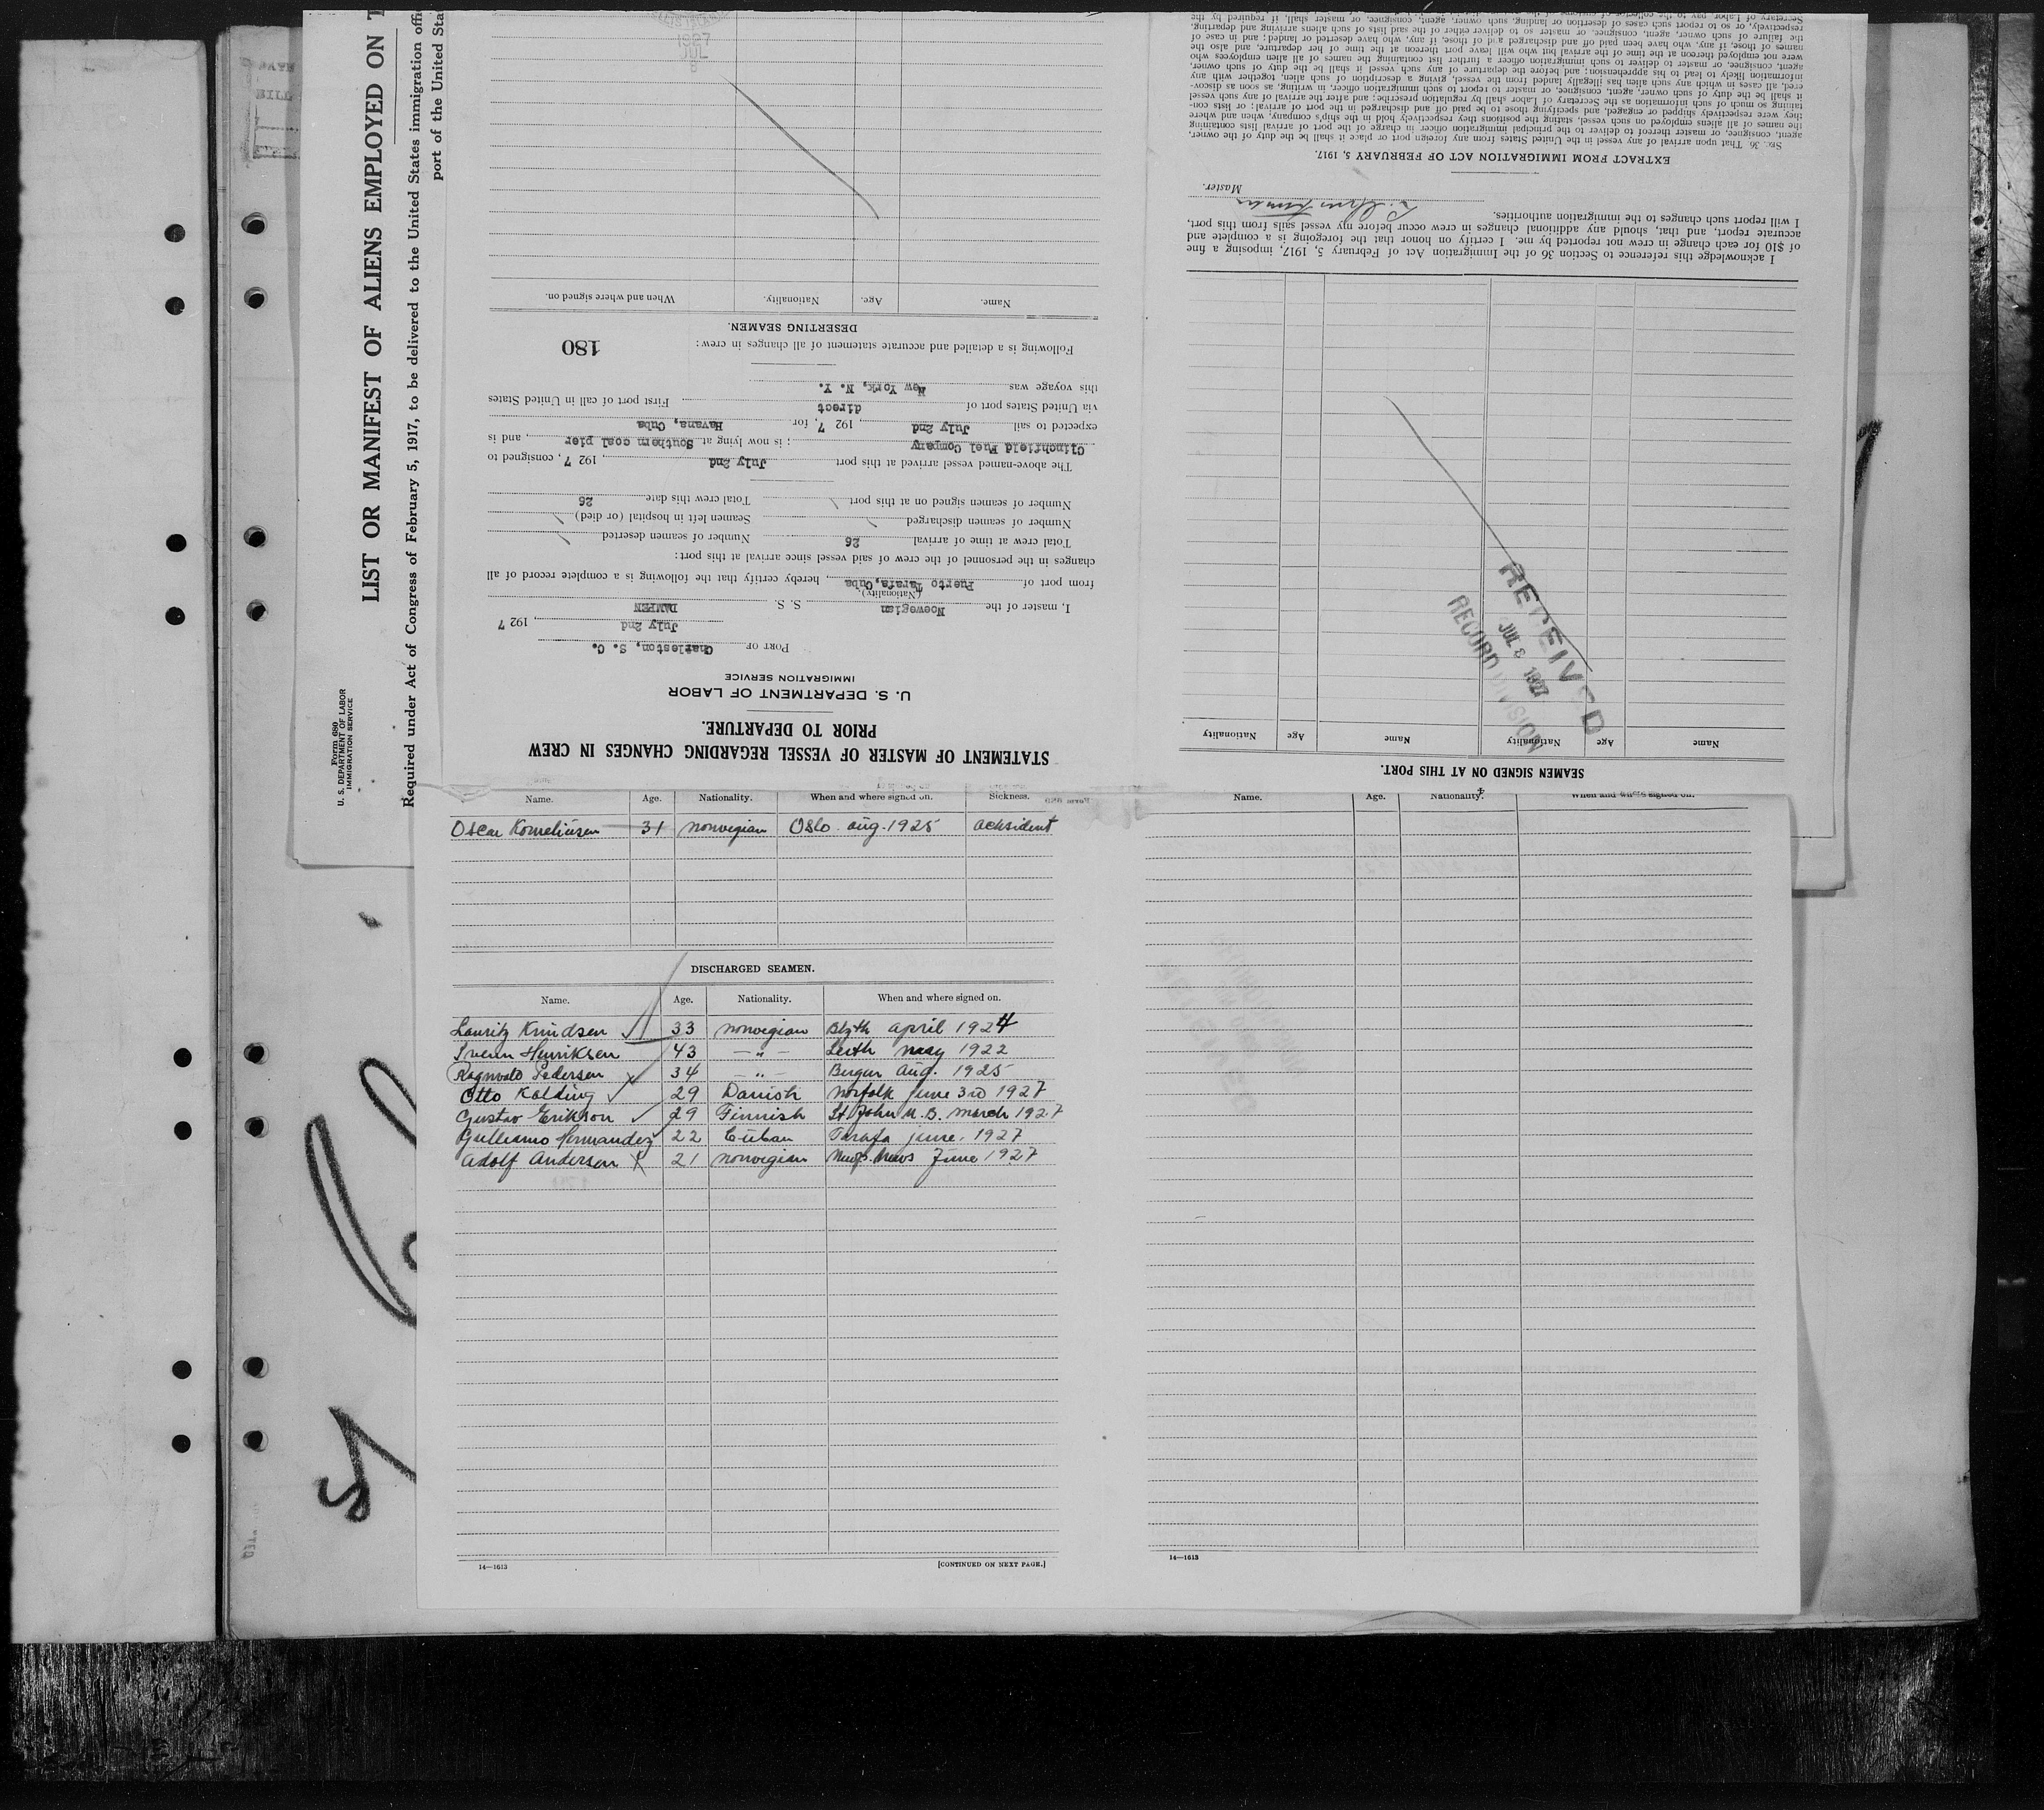 Form 680
U. S. DEPARTMENT OF LABOR
IMMIGRATION SERVICE
LIST OR MANIFEST OF ALIENS EMPLOYED ON T
Required under Act of Congress of February 5, 1917, to be delivered to the United States immigration offi
port of the United Sta
STATEMENT OF MASTER OF VESSEL REGARDING CHANGES IN CREW
PRIOR TO DEPARTURE.
U. S. DEPARTMENT OF LABOR
IMMIGRATION SERVICE
PORT OF Charleston, S. C.
July 2nd, 1927
I, master of the Noewegian S. S. DAMPEN
(Nationality).
from port of Puerto Tarafa, Cuba, hereby certify that the following is a complete record of all
changes in the personnel of the crew of said vessel since arrival at this port:
Total crew at time of arrival 26 Number of seamen deserted
Number of seamen discharged Seamen left in hospital (or died)
Number of seamen signed on at this port Total crew this date 26
The above-named vessel arrived at this port July 2nd, 1927, consigned to
Clinchfield Fuel Company; is now lying at Southern coal pier, and is
expected to sail July 2nd, 1927, for Havana, Cuba
via United States port of direct First port of call in United States
this voyage was New York, N. Y.
Following is a detailed and accurate statement of all changes in crew: 180
DESERTING SEAMEN.
Name. Age. Nationality. When and where signed on.
1927
JUL
SEAMEN SIGNED ON AT THIS PORT.
Name Age Nationality Name Age Nationality
RECEIVED
JUL 8 1927
RECORD DIVISION
I acknowledge this reference to Section 36 of the Immigration Act of February 5, 1917, imposing a fine
of $10 for each change in crew not reported by me. I certify on honor that the foregoing is a complete and
accurate report, and that, should any additional changes in crew occur before my vessel sails from this port,
I will report such changes to the immigration authorities.
Master.
EXTRACT FROM IMMIGRATION ACT OF FEBRUARY 5, 1917.
SEC. 36. That upon arrival of any vessel in the United States from any foreign port or place it shall be the duty of the owner,
agent, consignee, or master thereof to deliver to the principal immigration officer in charge of the port of arrival lists containing
the names of all aliens employed on such vessel, stating the positions they respectively hold in the ship's company, when and where
they were respectively shipped or engaged, and specifying those to be paid off and discharged in the port of arrival; or lists con-
taining so much of such information as the Secretary of Labor shall by regulation prescribe; and after the arrival of any such vessel
it shall be the duty of such owner, agent, consignee, or master to report to such immigration officer, in writing, as soon as discov-
ered, all cases in which any such alien has illegally landed from the vessel, giving a description of such alien, together with any
information likely to lead to his apprehension; and before the departure of any such vessel it shall be the duty of such owner,
agent, consignee, or master to deliver to such immigration officer a further list containing the names of all alien employees who
were not employed thereon at the time of the arrival but who will leave port thereon at the time of her departure, and also the
names of those, if any, who have been paid off and discharged and of those, if any, who have deserted or landed; and in case of
the failure of such owner, agent, consignee, or master so to deliver either of the said lists of such aliens arriving and departing,
respectively, or so to report such cases of desertion or landing, such owner, agent, consignee, or master shall, if required by the
Name. Age. Nationality. When and where signed on. Sickness.
Oscar Korneliusen 31 norvegian Oslo aug. 1925 acksident
DISCHARGED SEAMEN.
Name. Age. Nationality. When and where signed on.
Lauritz Knudsen 33 norvegian Blyth april 1924
Svenn Henriksen 43 — " — Leith may 1922
Ragnvald Pedersen 34 — " — Bergen Aug. 1925
Otto Kolding 29 Danish Norfolk june 3rd 1927
Gustav Erikson 29 Finnish St. John N. B. march 1927
Gulliamo Hernandez 22 Cuban Tarafa june. 1927
Adolf Andersen 21 norvegian Newp. News June 1927
14—1613 [CONTINUED ON NEXT PAGE.]
Name. Age. Nationality. When and where signed on.
14—1613